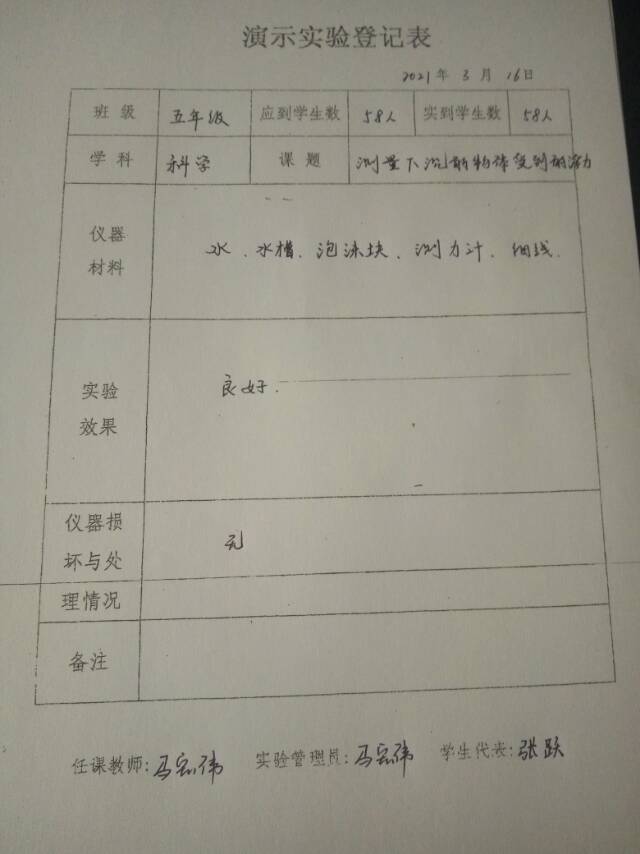 演示实验登记表
2021年 3月 16日
班级 五年级 应到学生数 58人 实到学生数 58人
学科 科学 课题 测量下沉的物体受到的浮力
仪器
材料
水、水槽、泡沫块、测力计、细线.
实验
效果
良好.
仪器损
坏与处
理情况
无
备注
任课教师:马宏伟 实验管理员:马宏伟 学生代表:张跃